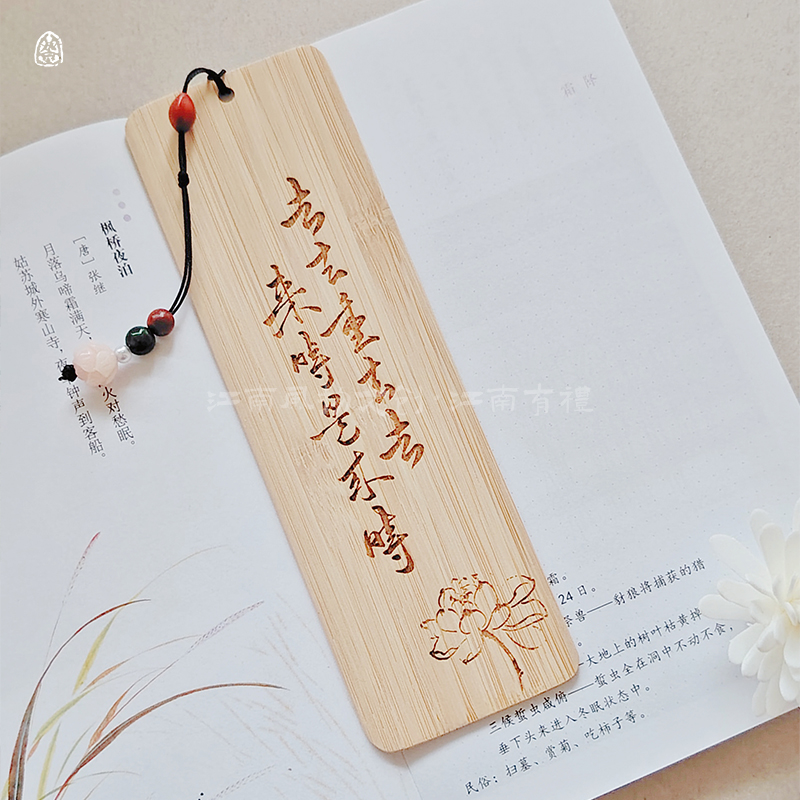 去去重去去
来時是来時
枫桥夜泊
[唐] 张继
月落乌啼霜满天，火对愁眠。
姑苏城外寒山寺，夜钟声到客船。
霜降
霜。
24日。
祭兽——豺狼将捕获的猎
——大地上的树叶枯黄掉
三候蛰虫咸俯——蛰虫全在洞中不动不食，
垂下头来进入冬眠状态中。
民俗：扫墓、赏菊、吃柿子等。
江南·江南有禮